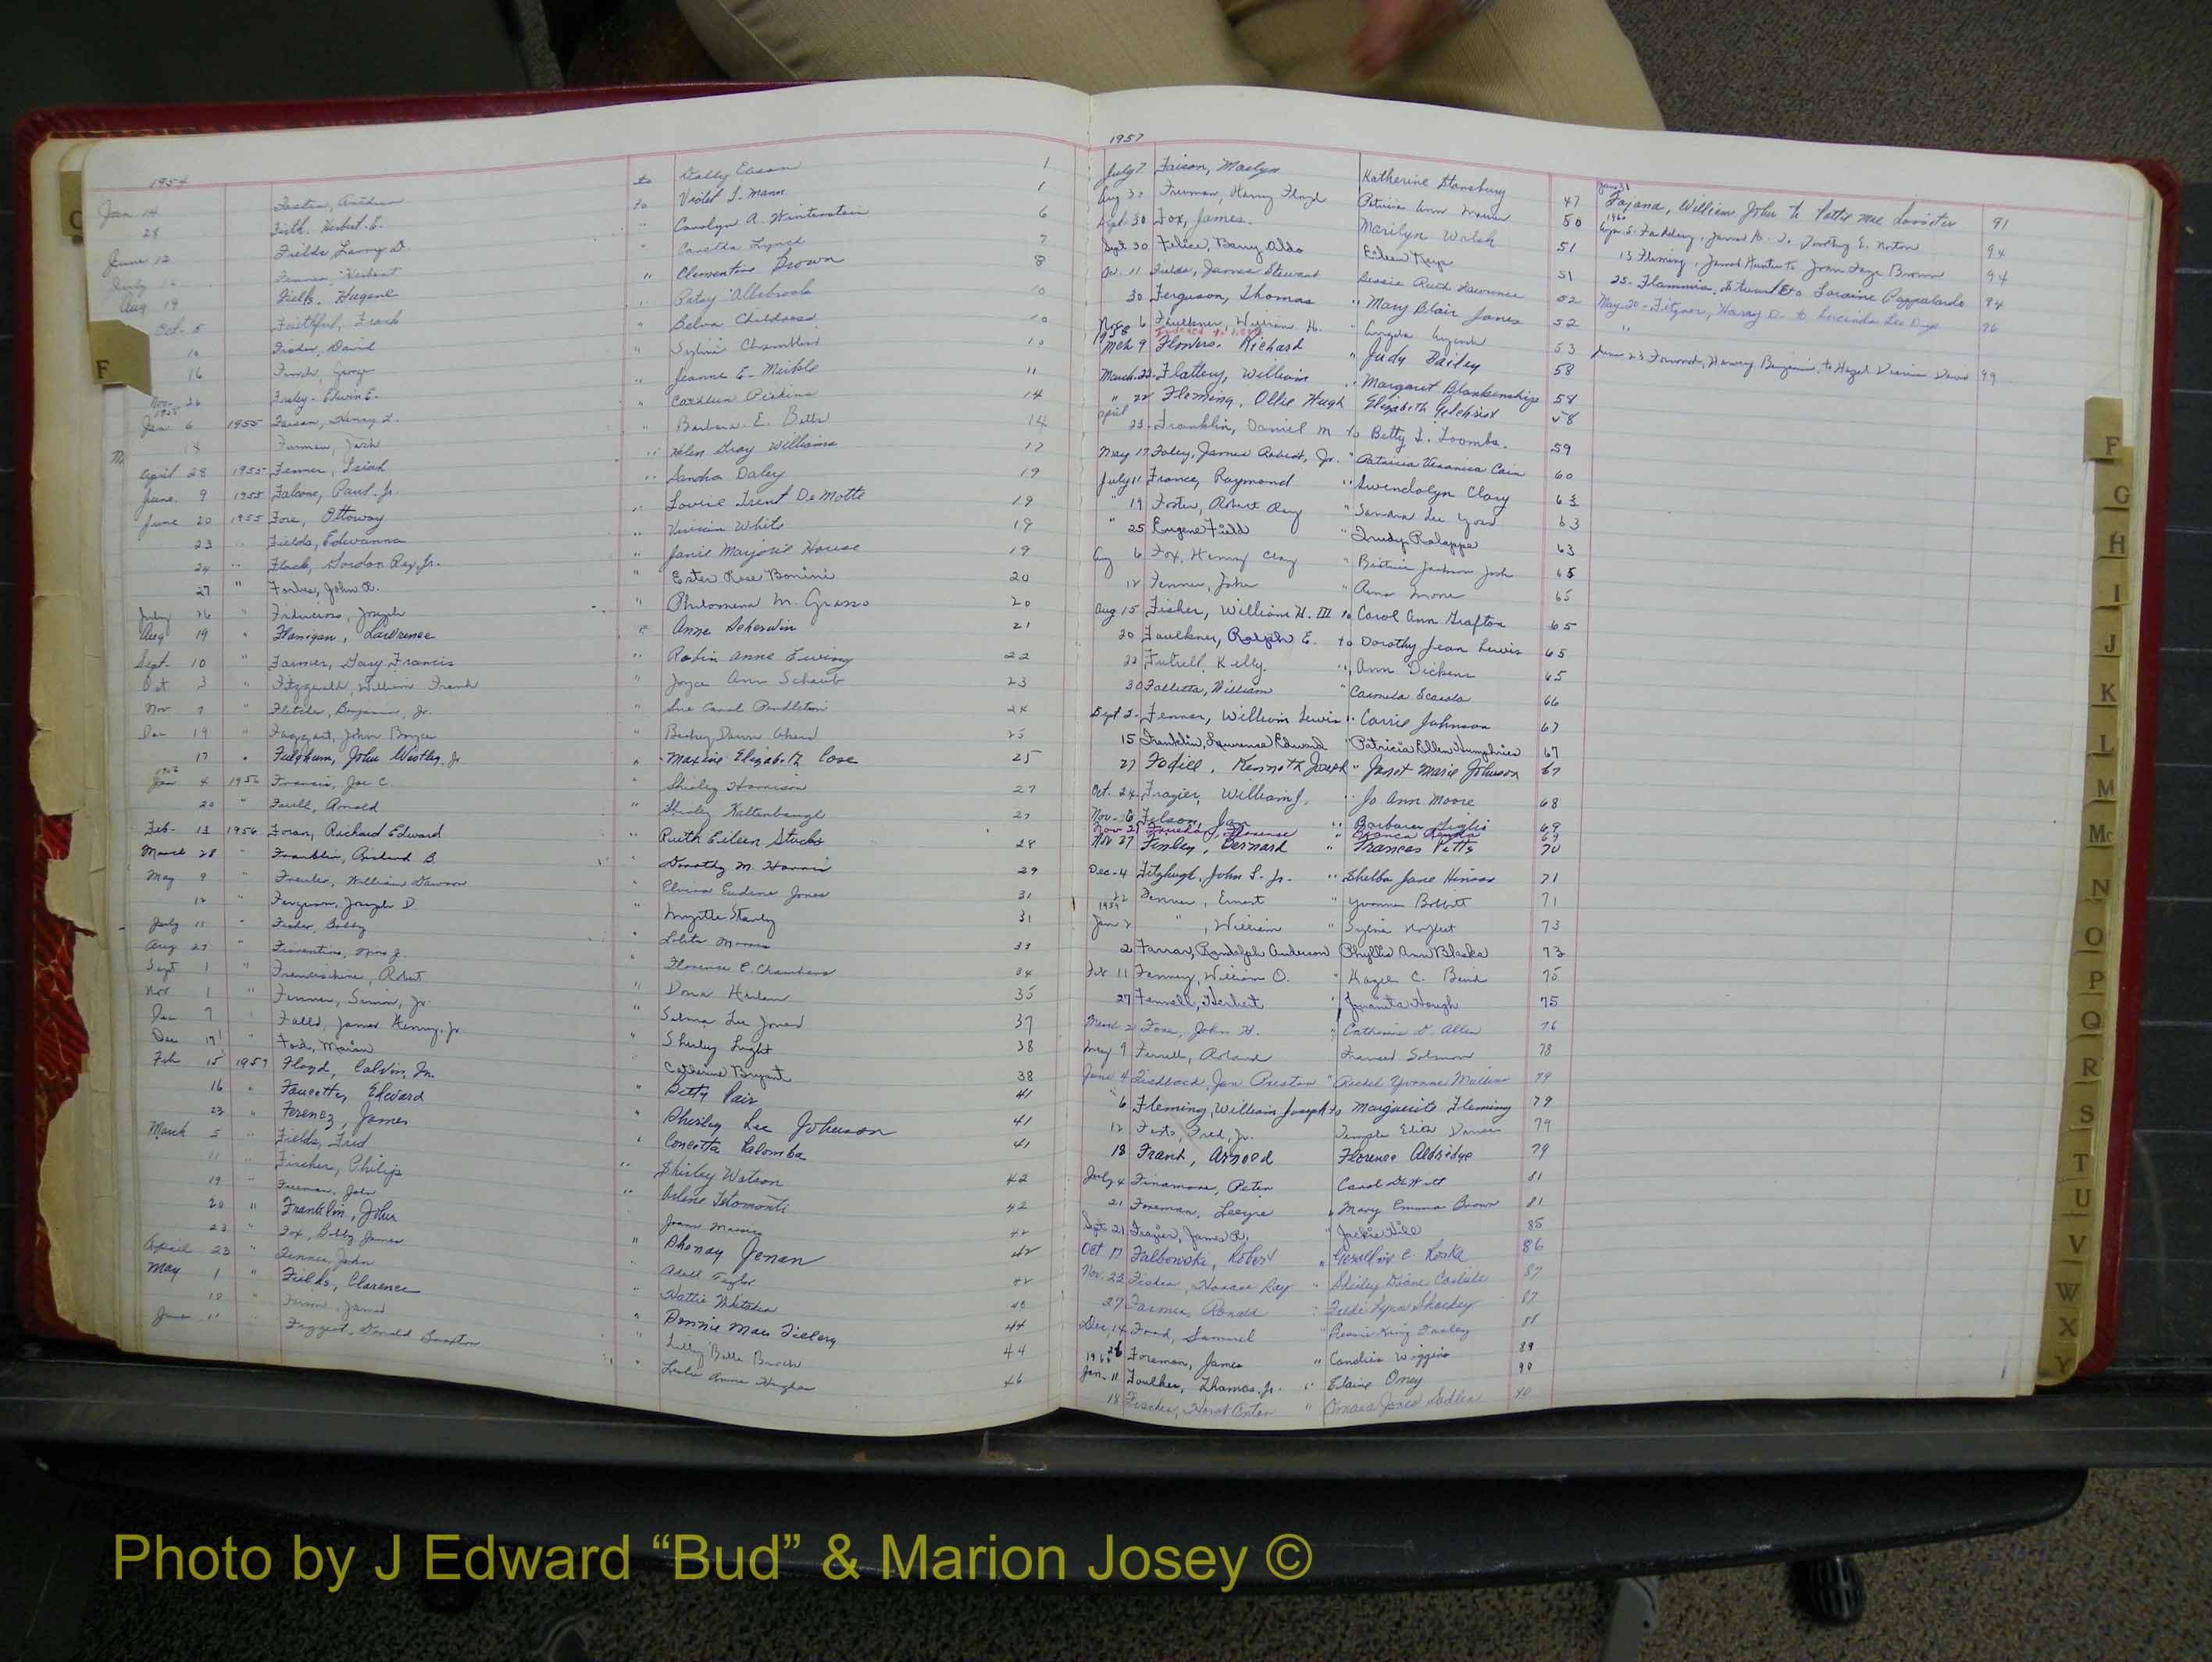 1954
Jan. 14 Foster, to Dolly Eason 1
28 Firth, Herbert E. to Violet L. Mann 1
June 12 Fields, Larry D. " Carolyn A. Winterstein 6
July Fenner, Herbert " Lynch 7
Aug 19 Fields, Eugene " Clementine Brown 8
Oct. 5 Faithful, Frank " Patsy Allsbrook 10
10 Fisher, David " Belva Childress 10
16 " Sylvia Chambliss 10
Nov. 26 Edwin E. " Jeanne E. Meikle 11
1955
Jan. 6 1955 Faison, Henry L. " Perkins 14
18 Furman, Jack " Barbara E. Betts 14
April 28 1955 Fenner, Isiah " Helen Gray Williams 17
June 9 1955 Falcone, Paul, Jr. " Sandra Daley 19
June 20 1955 Fore, Ottoway " Louise Trent DeMotte 19
23 " Fields, Edwanna " Vivian White 19
24 " Flack, Gordon Ray, Jr. " Janie Marjorie House 19
27 " Forbes, John A. " Ester Rose Bonini 20
July 26 " Joseph " Philomena M. Grasso 20
Aug 19 " Flanigan, Lawrence " Anne Scherwin 21
Sept. 10 " Farmer, Gary Francis " Robin Anne Ewing 22
Oct 3 " Fitzgerald, William Frank " Joyce Ann Schaub 23
Nov 7 " Fletcher, Benjamin, Jr. " Sue Carol Pendleton 24
Dec 19 " Faggart, John Boyce " Dawn 25
17 " Fulghum, John Westley, Jr. " Maxine Elizabeth Cose 25
1956
Jan 4 1956 Francis, Joe C. " Shirley Harrison 27
20 " Arnold " Shirley Kaltenbaugh 27
Feb. 13 1956 Foran, Richard Edward " Ruth Eileen Stucks 28
March 28 " Franklin, Richard B. " Dorothy M. Harris 29
May 9 " William Dawson " Elvira Eudene Jones 31
12 " Ferguson, Joseph D. " Myrtle Stanley 31
July 11 " Fisher, Bobby " Lolita 33
Aug 27 " Fiorentino, Nino J. " Florence E. Chambers 34
Sept 1 " Franceschini, Robert " Dona Harlan 35
Nov 1 " Fenner, Simon, Jr. " Selma Lee Jones 37
Dec 7 " Falls, James Henry, Jr. " Shirley Light 38
Dec 17 " Ford, Marion " Catherine Bryant 38
Feb 15 1957 Floyd, Calvin, Jr. " Betty Pair 41
16 " Faucette, Edward " Shirley Lee Johnson 41
23 " Ferencz, James " Concetta Palomba 41
March 5 " Fields, Fred " Shirley Watson 42
11 " Fischer, Philip " Arlene 42
19 " Freeman, John Joann 42
20 " Franklin, John " Shenay Jenan 42
23 " Fox, Bobby James Adell Taylor 42
April 23 " Fenner, John " Hattie Whitaker
May 1 " Fields, Clarence " Bonnie Mae Tillery 44
10 " James " Lilly Belle 44
June 11 " Faggert, Donald Braxton " Leslie Anne Hughes 46
1957
July 7 Faison, Maslyn Katherine Stansbury 47
Aug 3 Freeman, Henry Floyd Patricia Ann 50
Sept. 30 Fox, James Marilyn Walsh 51
Sept. 30 Felice, Barry Aldo Eileen Kaye 51
Oc. 11 Fields, James Stewart Bessie Ruth Lawrence 52
30 Ferguson, Thomas " Mary Blair James 52
Nov 6 Faulkner, William H. " 53
1958
Mch 9 Flowers, Richard " Judy Bailey 58
March 22 Flattery, William " Margaret Blankenship 58
" 22 Fleming, Ollie Hugh Elizabeth Gilchrist 58
April 23 Franklin, Daniel M to Betty L. Toombs 59
May 17 Foley, James Robert, Jr. " Patricia Veronica Cain 60
July 11 France, Raymond " Gwendolyn Clary 63
" 19 Foster, Robert Ray " Sandra Lee 63
" 25 Eugene Field " Trudy Ralappe 63
Aug 6 Fox, Henry Clay " Jackson 65
12 Fenner, John " Moore 65
Aug 15 Fisher, William H. III to Carol Ann Grafton 65
20 Faulkner, Ralph E. to Dorothy Jean Lewis 65
22 Futrell, Kelly " Ann Dickens 65
30 William " Carmela Scarola 66
Sept 2 Fenner, William Lewis " Carrie Johnson 67
15 Franklin, Lawrence Edward " Patricia Ellen Humphries 67
27 Fodill, Kenneth Joseph " Janet Marie Johnson 67
Oct. 24 Frazier, William J. " Jo Ann Moore 68
Nov. 6 Folson, " Barbara Giglio 69
Nov 21 Florense " Bianca 69
Nov 27 Finley, Bernard " Frances Pitts 70
Dec. 4 Fitzhugh, John S. Jr. " Shelba Jane Hines 71
22 Fenner, Ernest " Yvonne Bobbitt 71
1959
Jan 2 ", William " Sylvia 73
2 Farrar, Randolph Anderson Phyllis Ann Blaska 73
Feb 11 Fanney, William O. " Hazel C. 75
27 Fennell, Herbert " Juanita Hough 75
March 2 Fose, John H. " Catherine D. Allen 76
May 9 Ferrell, Frances Solmon 78
June 4 Jan Preston " Rachel Yvonne Mullins 79
" 6 Fleming, William Joseph to Marguerite Fleming 79
12 Fred, Jr. Temple Elise 79
18 Frank, Arnold Florence Aldridge 79
July 4 Finamore, Peter Carol DeWitt 81
21 Foreman, Leeyre " Mary Emma Brown 81
Sept 21 Frazier, James R. " Jackie Hill 85
Oct 17 Falbowski, Robert " Geraldine C. Koska 86
Nov. 23 Fisher, Horace Ray " Shirley Diane Carlisle 87
27 Farmer, Ronald " Lynn Shockey 87
Dec. 14 Ford, Samuel King 88
26 Foreman, James " Candies Wiggins 89
1960
Jan. 11 Faulker, Thomas, Jr. " Elaine Oney 90
18 Fischer, Horst Anton " Janice Sadler 90
Jan 31
Fajana, William John to Lottie Mae 91
1960
Apr. 5. James A. to Dorothy E. Norton 94
13 Fleming, James Hunter to Joan Faye Brown 94
25 - Flammia, to Loraine Pappalardo 94
May 20 - Fitzner, Harry D. to Lucinda Lee 96
"
June 23 Benjamin, to Hazel 99
C
F
M
F
G
H
I
J
K
L
M
Mc
N
O
P
Q
R
S
T
U
V
W
X
Y
Photo by J Edward “Bud” & Marion Josey ©